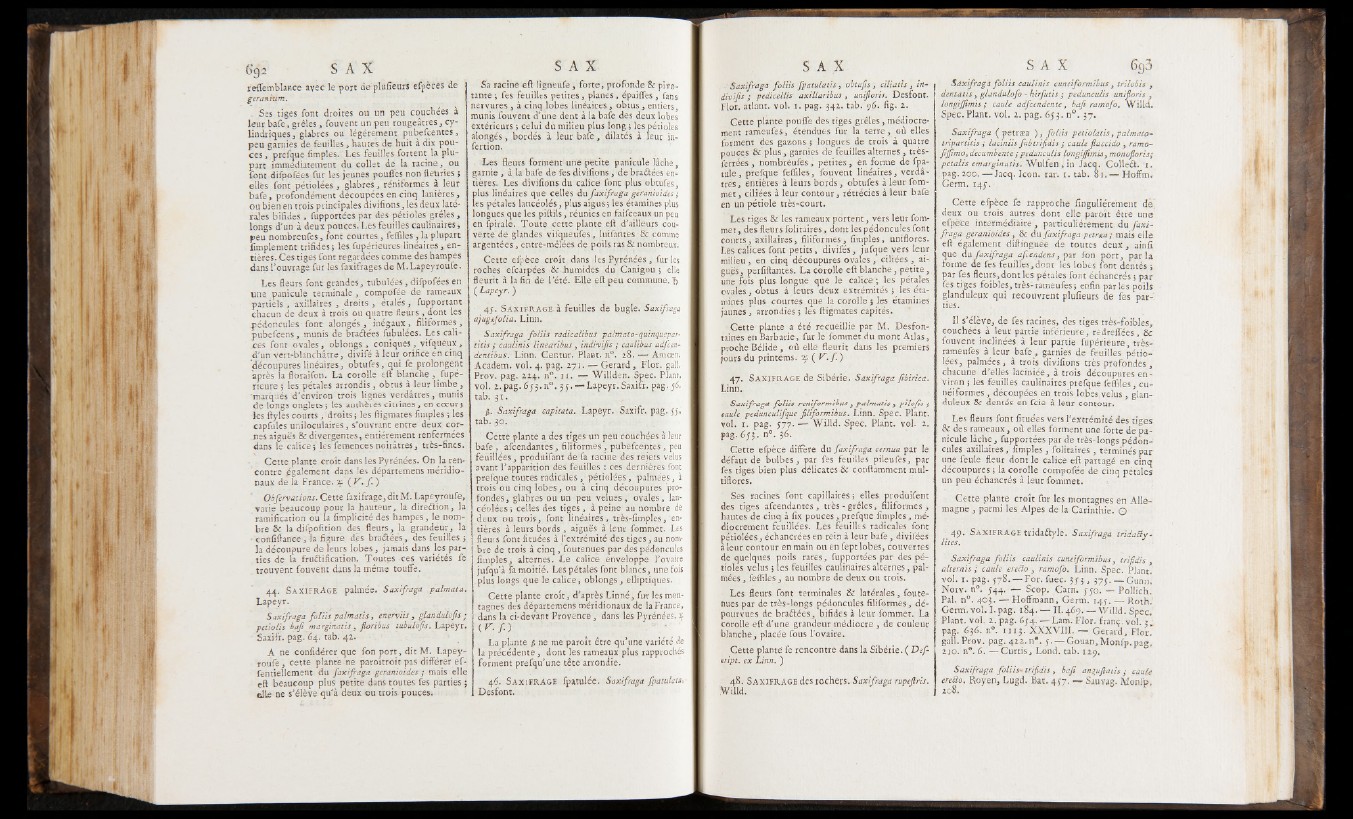 692
S A X
ressemblance avec le port de plusieurs espèces de
geranium.
Ses tiges sont droites ou un peu couchées à
leur base, grêles, souvent un peu rougeâtres, cy-
lindriques, glabres ou légérement pubescentes,
peu garnies de feuilles, hautes de huit à dix pou-
ces, presque simples. Les feuilles sortent la plu-
part immédiatement du collet de la racine, ou
sont disposées sur les jeunes pousses non fleuries ;
elles sont pétiolées, glabres, réniformes à leur
base, profondément découpées en cinq lanières,
ou bien en trois principales divisions, les deux laté-
rales bifides, supportées par des pétioles grêles,
longs d'un à deux pouces. Les feuilles caulinaires,
peu nombreuses, sont courtes, sessiles, la plupart
simplement trifides ; les supérieures linéaires, en-
tières. Ces tiges sont regardées comme des hampes
dans l'ouvrage sur les saxifrages de M. Lapeyrouse.
Les fleurs sont grandes, tubulées, disposées en
une panicule terminale, composée de rameaux
partiels, axillaires, droits, étalés, supportant
chacun de deux à trois ou quatre fleurs, dont les
pédoncules sont alongés, inégaux, filiformes,
pubescens, munis de bractées subulées. Les cali-
ces sont ovales, oblongs, coniques, visqueux,
d'un vert-blanchâtre, divisé à leur orifice en cinq
découpures linéaires, obtuses, qui se prolongent
après la floraison. La corolle est blanche, supé-
rieure ; les pétales arrondis, obtus à leur limbe,
marqués d'environ trois lignes verdâtres, munis
de longs onglets ; les anthères citrines, en cœur ;
les styles courts, droits ; les stigmates simples ; les
capsules uniloculaires, s'ouvrant entre deux cor-
nes aiguës & divergentes, entiérement renfermées
dans le calice ; les semences noirâtres, très-fines.
Cette plante croît dans les Pyrénées. On la ren-
contre également dans les départemens méridio-
naux de la France. ♃ ( V. s. )
Observations. Cette saxifrage, dit M. Lapeyrouse,
varie beaucoup pour la hauteur, la direction, la
ramification ou la simplicité des hampes, le nom-
bre & la disposition des fleurs, la grandeur, la
consistance, la figure des bractées, des feuilles ;
la découpure de leurs lobes, jamais dans les par-
ties de la fructification. Toutes ces variétés se
trouvent souvent dans la même touffe.
44. SAXIFRAGE palmée. Saxifraga palmata.
Lapeyr.
Saxifraga foliis palmatis, enerviis, glandulosis ;
petiolis basi marginatis, floribus tubulosis. Lapeyr.
Saxifr. pag. 64. tab. 42.
A ne considérer que son port, dit M. Lapey-
rouse, cette plante ne paroîtroit pas différer es-
sentiellement du saxifraga geranioides ; mais elle
est beaucoup plus petite dans toutes ses parties ;
elle ne s'élève qu'à deux ou trois pouces.
S A X
Sa racine est ligneuse, forte, profonde & pivo-
tante ; ses feuilles petites, planes, épaisses, sans
nervures, à cinq lobes linéaires, obtus, entiers,
munis souvent d'une dent à la base des deux lobes
extérieurs ; celui du milieu plus long ; les pétioles
alongés, bordés à leur base, dilatés à leur in-
sertion.
Les fleurs forment une petite panicule lâche,
garnie, à la base de ses divisions, de bractées en-
tières. Les divisions du calice sont plus obtuses,
plus linéaires que celles du saxifraga geranioides ;
les pétales lancéolés, plus aigus ; les étamines plus
longues que les pistils, réunies en faisceaux un peu
en spirale. Toute cette plante est d'ailleurs cou-
verte de glandes visqueuses, luisantes & comme
argentées, entre-mêlées de poils ras & nombreux.
Cette espèce croît dans les Pyrénées, sur les
roches escarpées & humides du Canigou ; elle
fleurit à la fin de l'été. Elle est peu commune. ♄
( Lapeyr. )
45. SAXIFRAGE à feuilles de bugle. Saxifraga
ajugæfolia. Linn.
Saxifraga foliis radicalibus palmato-quinquepar-
titis ; caulinis linearibus, indivisis ; caulibus adscen-
dentibus. Linn. Centur. Plant. n°. 28. — Amœn.
Academ. vol. 4. pag. 271. — Gerard, Flor. gall.
Prov. pag. 424. n°. 11. — Willden. Spec. Plant.
vol. 2. pag. 653. n°. 35. — Lapeyr. Saxifr. pag. 56.
tab. 31.
β. Saxifraga capitata. Lapeyr. Saxifr. pag. 55.
tab. 30.
Cette plante a des tiges un peu couchées à leur
base, ascendantes, filiformes, pubescentes, peu
feuillées, produisant de sa racine des rejets velus
avant l'apparition des feuilles : ces dernières sont
presque toutes radicales, pétiolées, palmées, à
trois ou cinq lobes, ou à cinq découpures pro-
fondes, glabres ou un peu velues, ovales, lan-
céolées ; celles des tiges, à peine au nombre de
deux ou trois, sont linéaires, très-simples, en-
tières à leurs bords, aiguës à leur sommet. Les
fleurs sont situées à l'extrémité des tiges, au nom-
bre de trois à cinq, soutenues par des pédoncules
simples, alternes. Le calice enveloppe l'ovaire
jusqu'à sa moitié. Les pétales sont blancs, une fois
plus longs que le calice, oblongs, elliptiques.
Cette plante croît, d'après Linné, sur les mon-
tagnes des départemens méridionaux de la France,
dans la ci-devant Provence, dans les Pyrénées. ♃
( V. s. )
La plante β ne me paroît être qu'une variété de
la précédente, dont les rameaux plus rapprochés
forment presqu'une tête arrondie.
46. SAXIFRAGE spatulée. Saxifraga spatulata.
Desfont.
S A X
Saxifraga foliis spatulatis, obtusis, ciliatis, in-
divisis ; pedicellis axillaribus, unifloris. Desfont.
Flor. atlant. vol. 1. pag. 342. tab. 96. fig. 2.
Cette plante pousse des tiges grêles, médiocre-
ment rameuses, étendues sur la terre, où elles
forment des gazons ; longues de trois à quatre
pouces & plus, garnies de feuilles alternes, très-
serrées, nombreuses, petites, en forme de spa-
tule, presque sessiles, souvent linéaires, verdâ-
tres, entières à leurs bords, obtuses à leur som-
met, ciliées à leur contour, rétrécies à leur base
en un pétiole très-court.
Les tiges & les rameaux portent, vers leur som-
met, des fleurs solitaires, dont les pédoncules sont
courts, axillaires, filiformes, simples, uniflores.
Les calices sont petits, divisés, jusque vers leur
milieu, en cinq découpures ovales, ciliées, ai-
guës, persistantes. La corolle est blanche, petite,
une fois plus longue que le calice ; les pétales
ovales, obtus à leurs deux extrémités ; les éta-
mines plus courtes que la corolle ; les étamines
jaunes, arrondies ; les stigmates capités.
Cette plante a été recueillie par M. Desfon-
taines en Barbarie, sur le sommet du mont Atlas,
proche Bélide, où elle fleurit dans les premiers
jours du printems. ♃ ( V. s. )
47. SAXIFRAGE de Sibérie. Saxifraga sibirica.
Linn.
Saxifraga foliis reniformibus, palmatis, pilosis ;
caule pedunculisque filiformibus. Linn. Spec. Plant.
vol. 1. pag. 577. — Willd. Spec. Plant. vol. 2.
pag. 653. n°. 36.
Cette espèce diffère du saxifraga cernua par le
défaut de bulbes, par ses feuilles pileuses, par
ses tiges bien plus délicates & constamment mul-
tiflores.
Ses racines sont capillaires ; elles produisent
des tiges ascendantes, très-grêles, filiformes,
hautes de cinq à six pouces, presque simples, mé-
diocrement feuillées. Les feuilles radicales sont
pétiolées, échancrées en rein à leur base, divisées
à leur contour en main ou en sept lobes, couvertes
de quelques poils rares, supportées par des pé-
tioles velus ; les feuilles caulinaires alternes, pal-
mées, sessiles, au nombre de deux ou trois.
Les fleurs sont terminales & latérales, soute-
nues par de très-longs pédoncules filiformes, dé-
pourvues de bractées, bifides à leur sommet. La
corolle est d'une grandeur médiocre, de couleur
blanche, placée sous l'ovaire.
Cette plante se rencontre dans la Sibérie. ( Des-
cript. ex Linn. )
48. SAXIFRAGE des rochers. Saxifraga rupestris.
Willd.
S A X
693
Saxifraga foliis caulinis cuneiformibus, trilobis,
densatis, glanduloso-hirsutis ; pedunculis unifloris,
longissimis ; caule adscendente, basi ramoso. Willd.
Spec. Plant. vol. 2. pag. 653. n°. 37.
Saxifraga ( petræa ), foliis petiolatis, palmato-
tripartitis ; laciniis subtrifidis ; caule flaccido, ramo-
sissimo, decumbente ; pedunculis longissimis, monofloris ;
petalis emarginatis. Wulfen, in Jacq. Collect. 1.
pag. 200. — Jacq. Icon. rar. 1. tab. 81. — Hoffm.
Germ. 145.
Cette espèce se rapproche singuliérement de
deux ou trois autres dont elle paroît être une
espèce intermédiaire, particuliérement du saxi-
fraga geranioides, & du saxifraga petræa ; mais elle
est également distinguée de toutes deux, ainsi
que du saxifraga ascendens, par son port, par la
forme de ses feuilles, dont les lobes sont dentés ;
par ses fleurs, dont les pétales sont échancrés ; par
ses tiges foibles, très-rameuses ; enfin par les poils
glanduleux qui recouvrent plusieurs de ses par-
ties.
Il s'élève, de ses racines, des tiges très-foibles,
couchées à leur partie inférieure, redressées, &
souvent inclinées à leur partie supérieure, très-
rameuses à leur base, garnies de feuilles pétio-
lées, palmées, à trois divisions très-profondes,
chacune d'elles laciniée, à trois découpures en-
viron ; les feuilles caulinaires presque sessiles, cu-
néiformes, découpées en trois lobes velus, glan-
duleux & dentés en scie à leur contour.
Les fleurs sont situées vers l'extrémité des tiges
& des rameaux, où elles forment une sorte de pa-
nicule lâche, supportées par de très-longs pédon-
cules axillaires, simples, solitaires, terminés par
une seule fleur dont le calice est partagé en cinq
découpures ; la corolle composée de cinq pétales
un peu échancrés à leur sommet.
Cette plante croît sur les montagnes en Alle-
magne, parmi les Alpes de la Carinthie. ⊙
49. SAXIFRAGE tridactyle. Saxifraga tridacty-
lites.
Saxifraga foliis caulinis cuneiformibus, trifidis,
alternis ; caule erecto, ramoso. Linn. Spec. Plant.
vol. 1. pag. 578. — Flor. suec. 353, 375. — Gunn.
Norv. n°. 544. — Scop. Carn. 550. — Pollich.
Pal. n°. 403. — Hoffmann, Germ. 145. — Roth.
Germ. vol. I. pag. 184. — II. 469. — Willd. Spec.
Plant. vol. 2. pag. 654. — Lam. Flor. franç. vol. 3.
pag. 636. n°. 1113. XXXVIII. — Gerard, Flor.
gall. Prov. pag. 422. n°. 5. — Gouan, Monsp. pag.
210. n°. 6. — Curtis, Lond. tab. 129.
Saxifraga foliis trifidis, basi angustatis ; caule
erecto. Royen, Lugd. Bat. 457. — Sauvag. Monsp.
108.